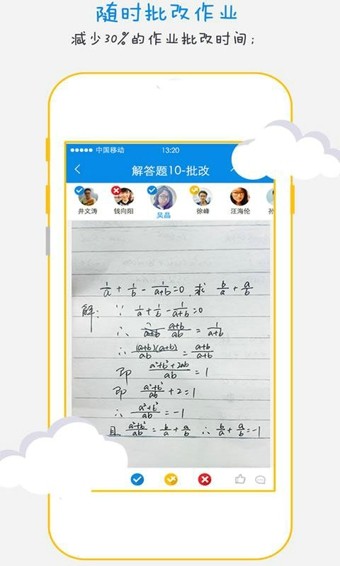 随时批改作业
减少30%的作业批改时间;
中国移动 13:20
解答题10-批改
井文涛 钱向阳 吴晶 徐峰 汪海伦 孙
1/a + 1/b - 1/(a+b) = 0 求 b/a + a/b
解: ∵ 1/a + 1/b - 1/(a+b) = 0
∴ (a+b)/ab = 1/(a+b)
∴ (a+b)(a+b)/ab = (a+b)/(a+b)
即 (a²+b²+2ab)/ab = 1
即 (a²+b²)/ab + 2 = 1
∴ (a²+b²)/ab = -1
且 (a²+b²)/ab = b/a + a/b ∴ b/a + a/b = -1